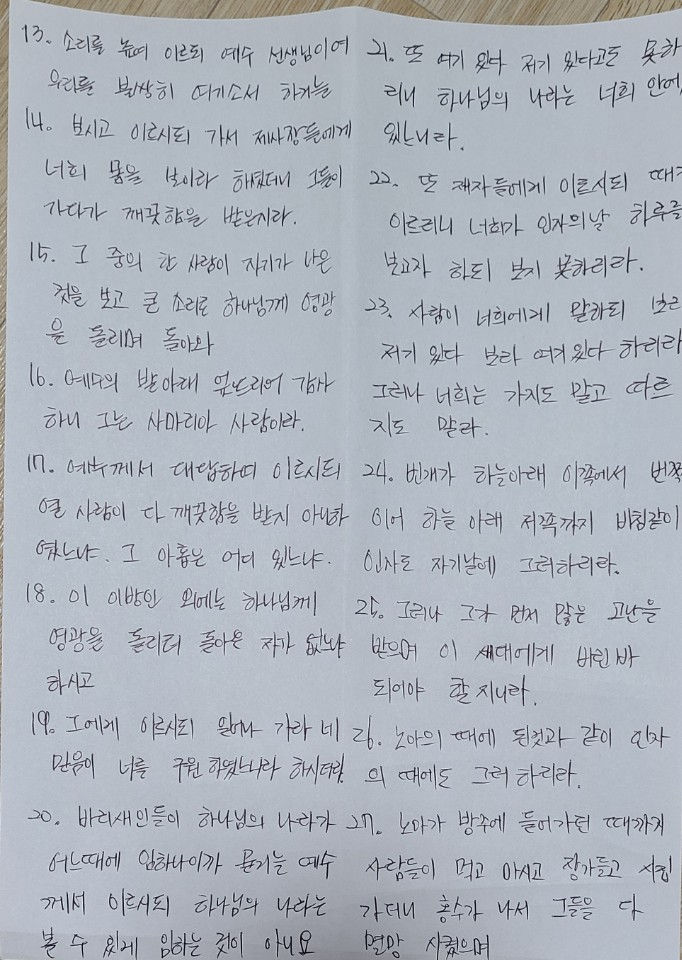 13. 소리를 높여 이르되 예수 선생님이여
우리를 불쌍히 여기소서 하거늘
14. 보시고 이르시되 가서 제사장들에게
너희 몸을 보이라 하셨더니 그들이
가다가 깨끗함을 받은지라.
15. 그 중의 한 사람이 자기가 나은
것을 보고 큰 소리로 하나님께 영광
을 돌리며 돌아와
16. 예수의 발아래 엎드리어 감사
하니 그는 사마리아 사람이라.
17. 예수께서 대답하여 이르시되
열 사람이 다 깨끗함을 받지 아니하
였느냐. 그 아홉은 어디 있느냐.
18. 이 이방인 외에는 하나님께
영광을 돌리러 돌아온 자가 없느냐
하시고
19. 그에게 이르시되 일어나 가라 네
믿음이 너를 구원 하였느니라 하시더라.
20. 바리새인들이 하나님의 나라가
어느때에 임하나이까 묻거늘 예수
께서 이르시되 하나님의 나라는
볼 수 있게 임하는 것이 아니요
21. 또 여기 있다 저기 있다고도 못하
리니 하나님의 나라는 너희 안에
있느니라.
22. 또 제자들에게 이르시되 때가
이르리니 너희가 인자의날 하루를
보고자 하되 보지 못하리라.
23. 사람이 너희에게 말하되 보라
저기 있다 보라 여기있다 하리라
그러나 너희는 가지도 말고 따르
지도 말라.
24. 번개가 하늘아래 이쪽에서 번쩍
이어 하늘 아래 저쪽까지 비침같이
인자도 자기날에 그러하리라.
25. 그러나 그가 먼저 많은 고난을
받으며 이 세대에게 버린바
되어야 할지니라.
26. 노아의 때에 된것과 같이 인자
의 때에도 그러하리라.
27. 노아가 방주에 들어가던 때까지
사람들이 먹고 마시고 장가들고 시집
가더니 홍수가 나서 그들을 다
멸망 시켰으며